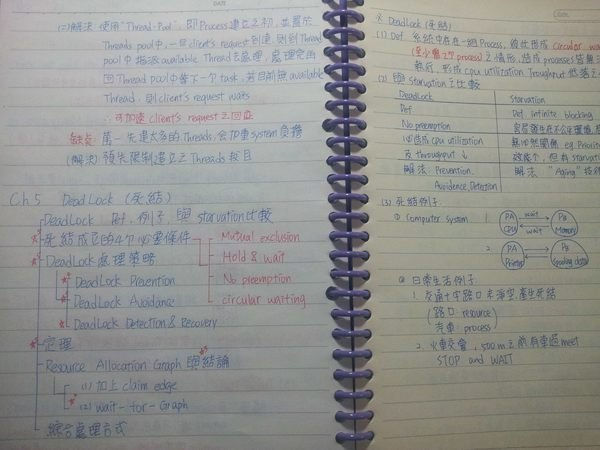 DATE
(二)解決: 使用 "Thread-Pool", 即 Process 建立之初, 並置於
Threads pool中, 一旦 client's request 到達, 則到 Thread
pool中 指派 available Thread 去處理, 處理完再
回 Thread pool 中等下一個 task, 若目前無 available
Thread, 則 client's request waits
∴可加速 client's request 之回應
缺點: 萬一先建太多的 Threads, 會加重 system 負擔
(解決) 預先限制建立之 Threads 數目
Ch5 DeadLock (死結)
DeadLock Def. 例子 與 starvation 比較
* 死結成立的4個必要條件
Mutual exclusion
Hold & wait
No preemption
circular waiting
* DeadLock 處理策略
* DeadLock Prevention
* DeadLock Avoidance
* DeadLock Detection & Recovery
* 定理
Resource Allocation Graph 與結論
(1) 加上 claim edge
* (2) wait-for-Graph
綜合處理方式
※ DeadLock (死結)
(1) Def. 系統中存在一組 Process, 彼此形成 circular wa
(至少需2個 process) 之情形, 造成 processes 皆無法
執行, 形成 cpu utilization, Throughput 低落
(2) 與 Starvation 之比較
DeadLock Starvation
Def. Def. infinite blocking
No preemption 容易發生在不公平環境,
必造成 cpu utilization 無必然關係 eg. Priorit
及 throughput ↓ 效能↑, 但有 starvation
解法: Prevention. 解法: "Aging" 技術
Avoidence, Detection
(3) 死結例子:
① Computer system
1. PA CPU wait wait PB Memory
2. PA Printer PB spooling data
② 日常生活例子
1. 交通十字路口未淨空, 產生死結
(路口: resource)
汽車: process)
2. 火車交會, 500m 之前有幸福 meet
STOP and WAIT